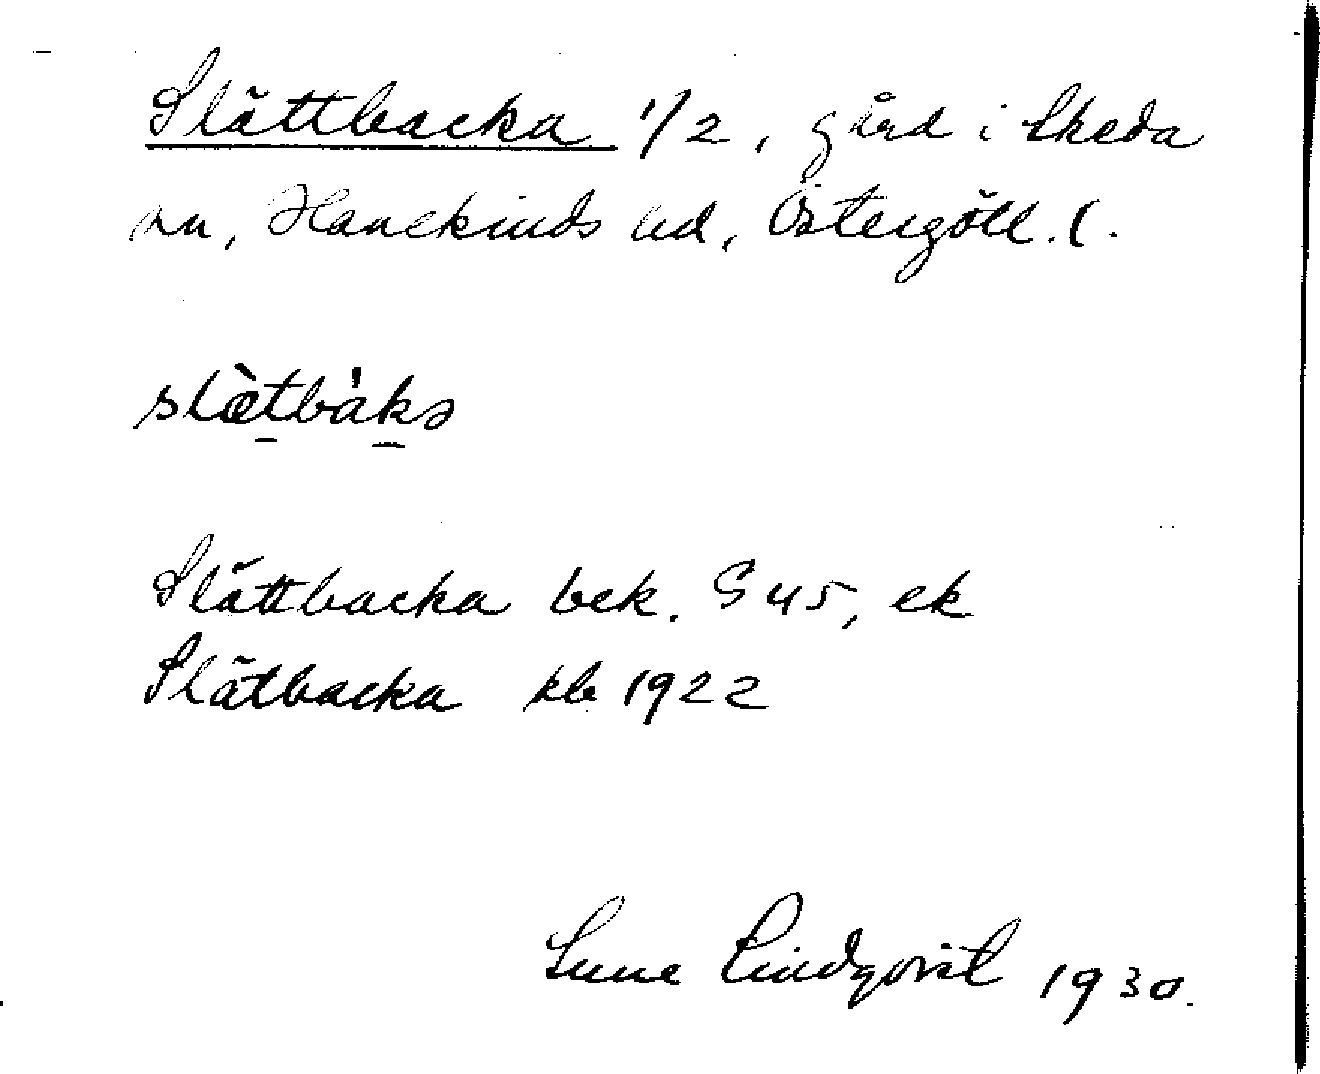 Slättbacka 1/2, gård i Skeda
sn, Hanekinds hd, Östergötl. l.
slæ̀tbàkə
Slättbacka bek. S 45, ek
Slätbacka kb 1922
Sune Lindqvist 1930.